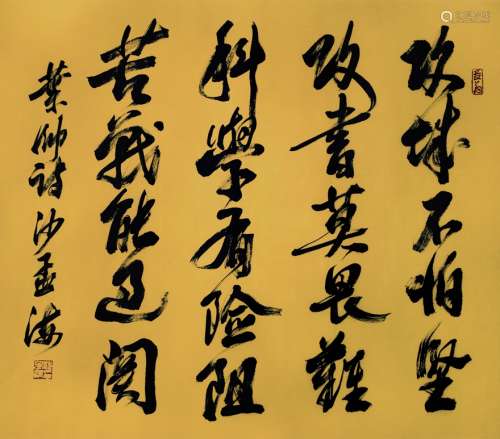 攻城不怕坚
攻书莫畏難
科學有险阻
苦战能过关
葉帅诗沙孟海